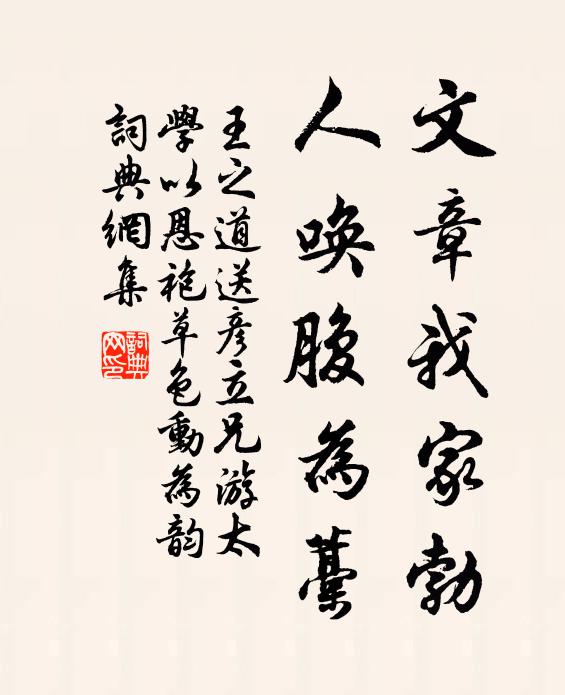 文章我家勃
人喚腹為藁
王之道送彥立兄游太
學以恩袍草色動為韵
詞典網集
詞典
网印